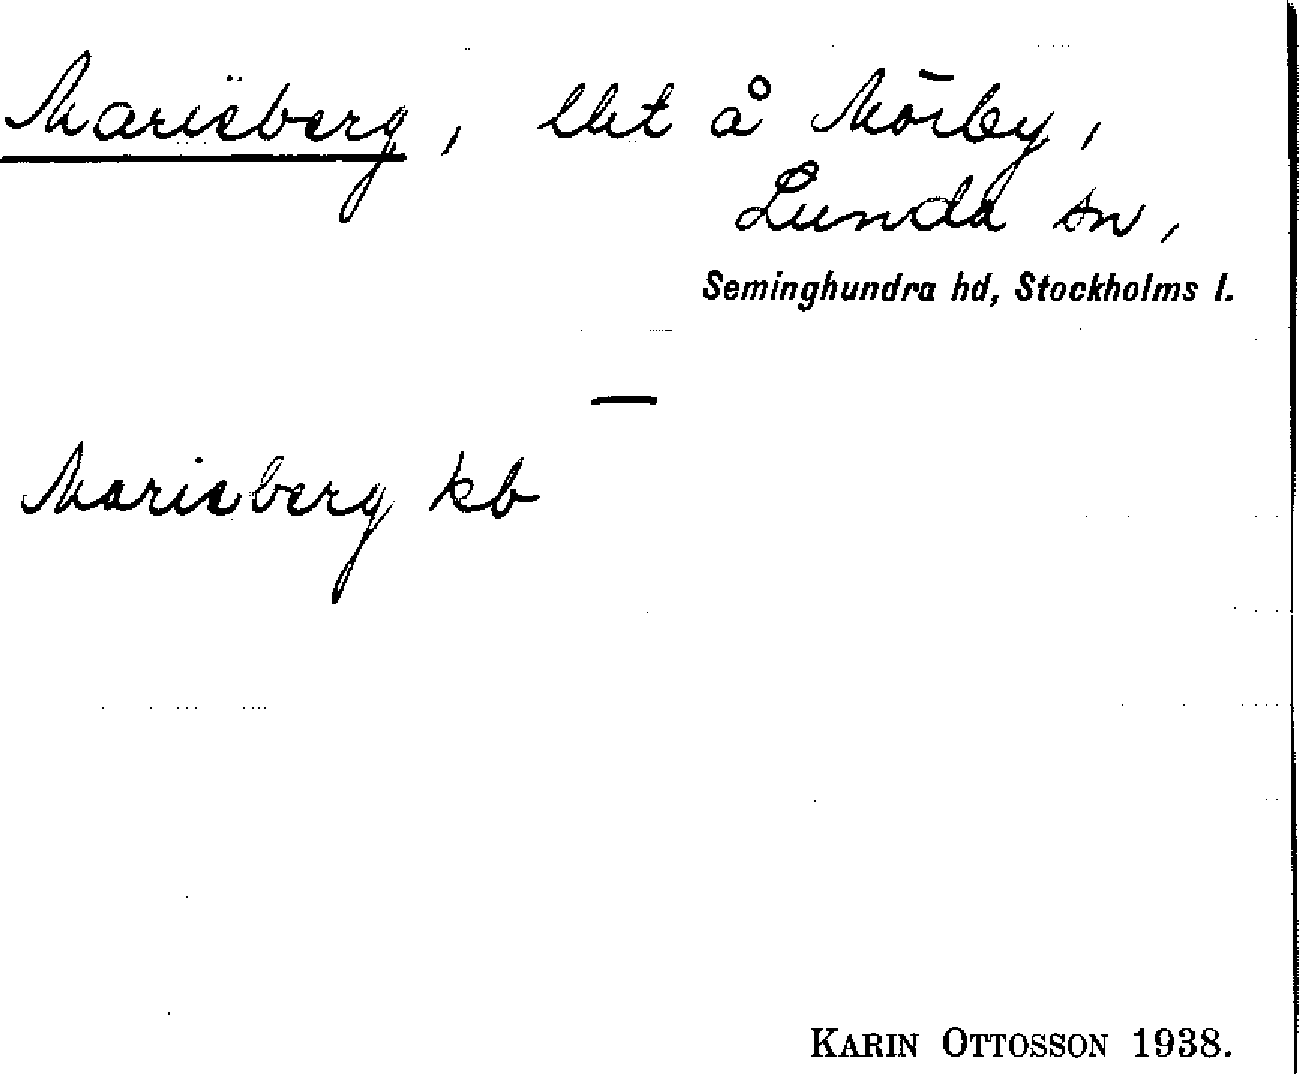 Marieberg, lht å Mörby,
Lunda sn,
Seminghundra hd, Stockholms l.
—
Marieberg kb
KARIN OTTOSSON 1938.